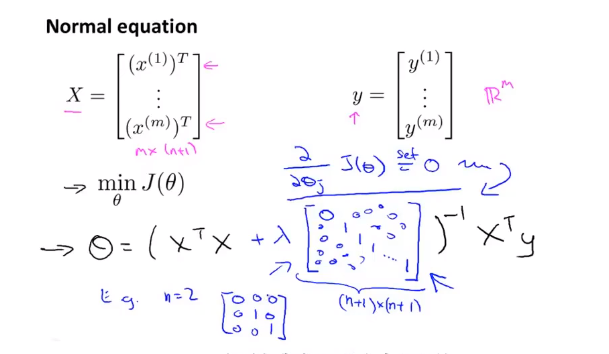 Normal equation
X = [ (x^(1))^T ⋮ (x^(m))^T ] ←
m×(n+1)
y = [ y^(1) ⋮ y^(m) ] ℝ^m
∂/∂θ_j J(θ) set = 0
→ min_θ J(θ)
→ θ = ( X^T X + λ [ 0 1 1 ⋱ 1 ] )^-1 X^T y
(n+1)×(n+1)
E.g. n=2 [ 0 0 0
0 1 0
0 0 1 ]